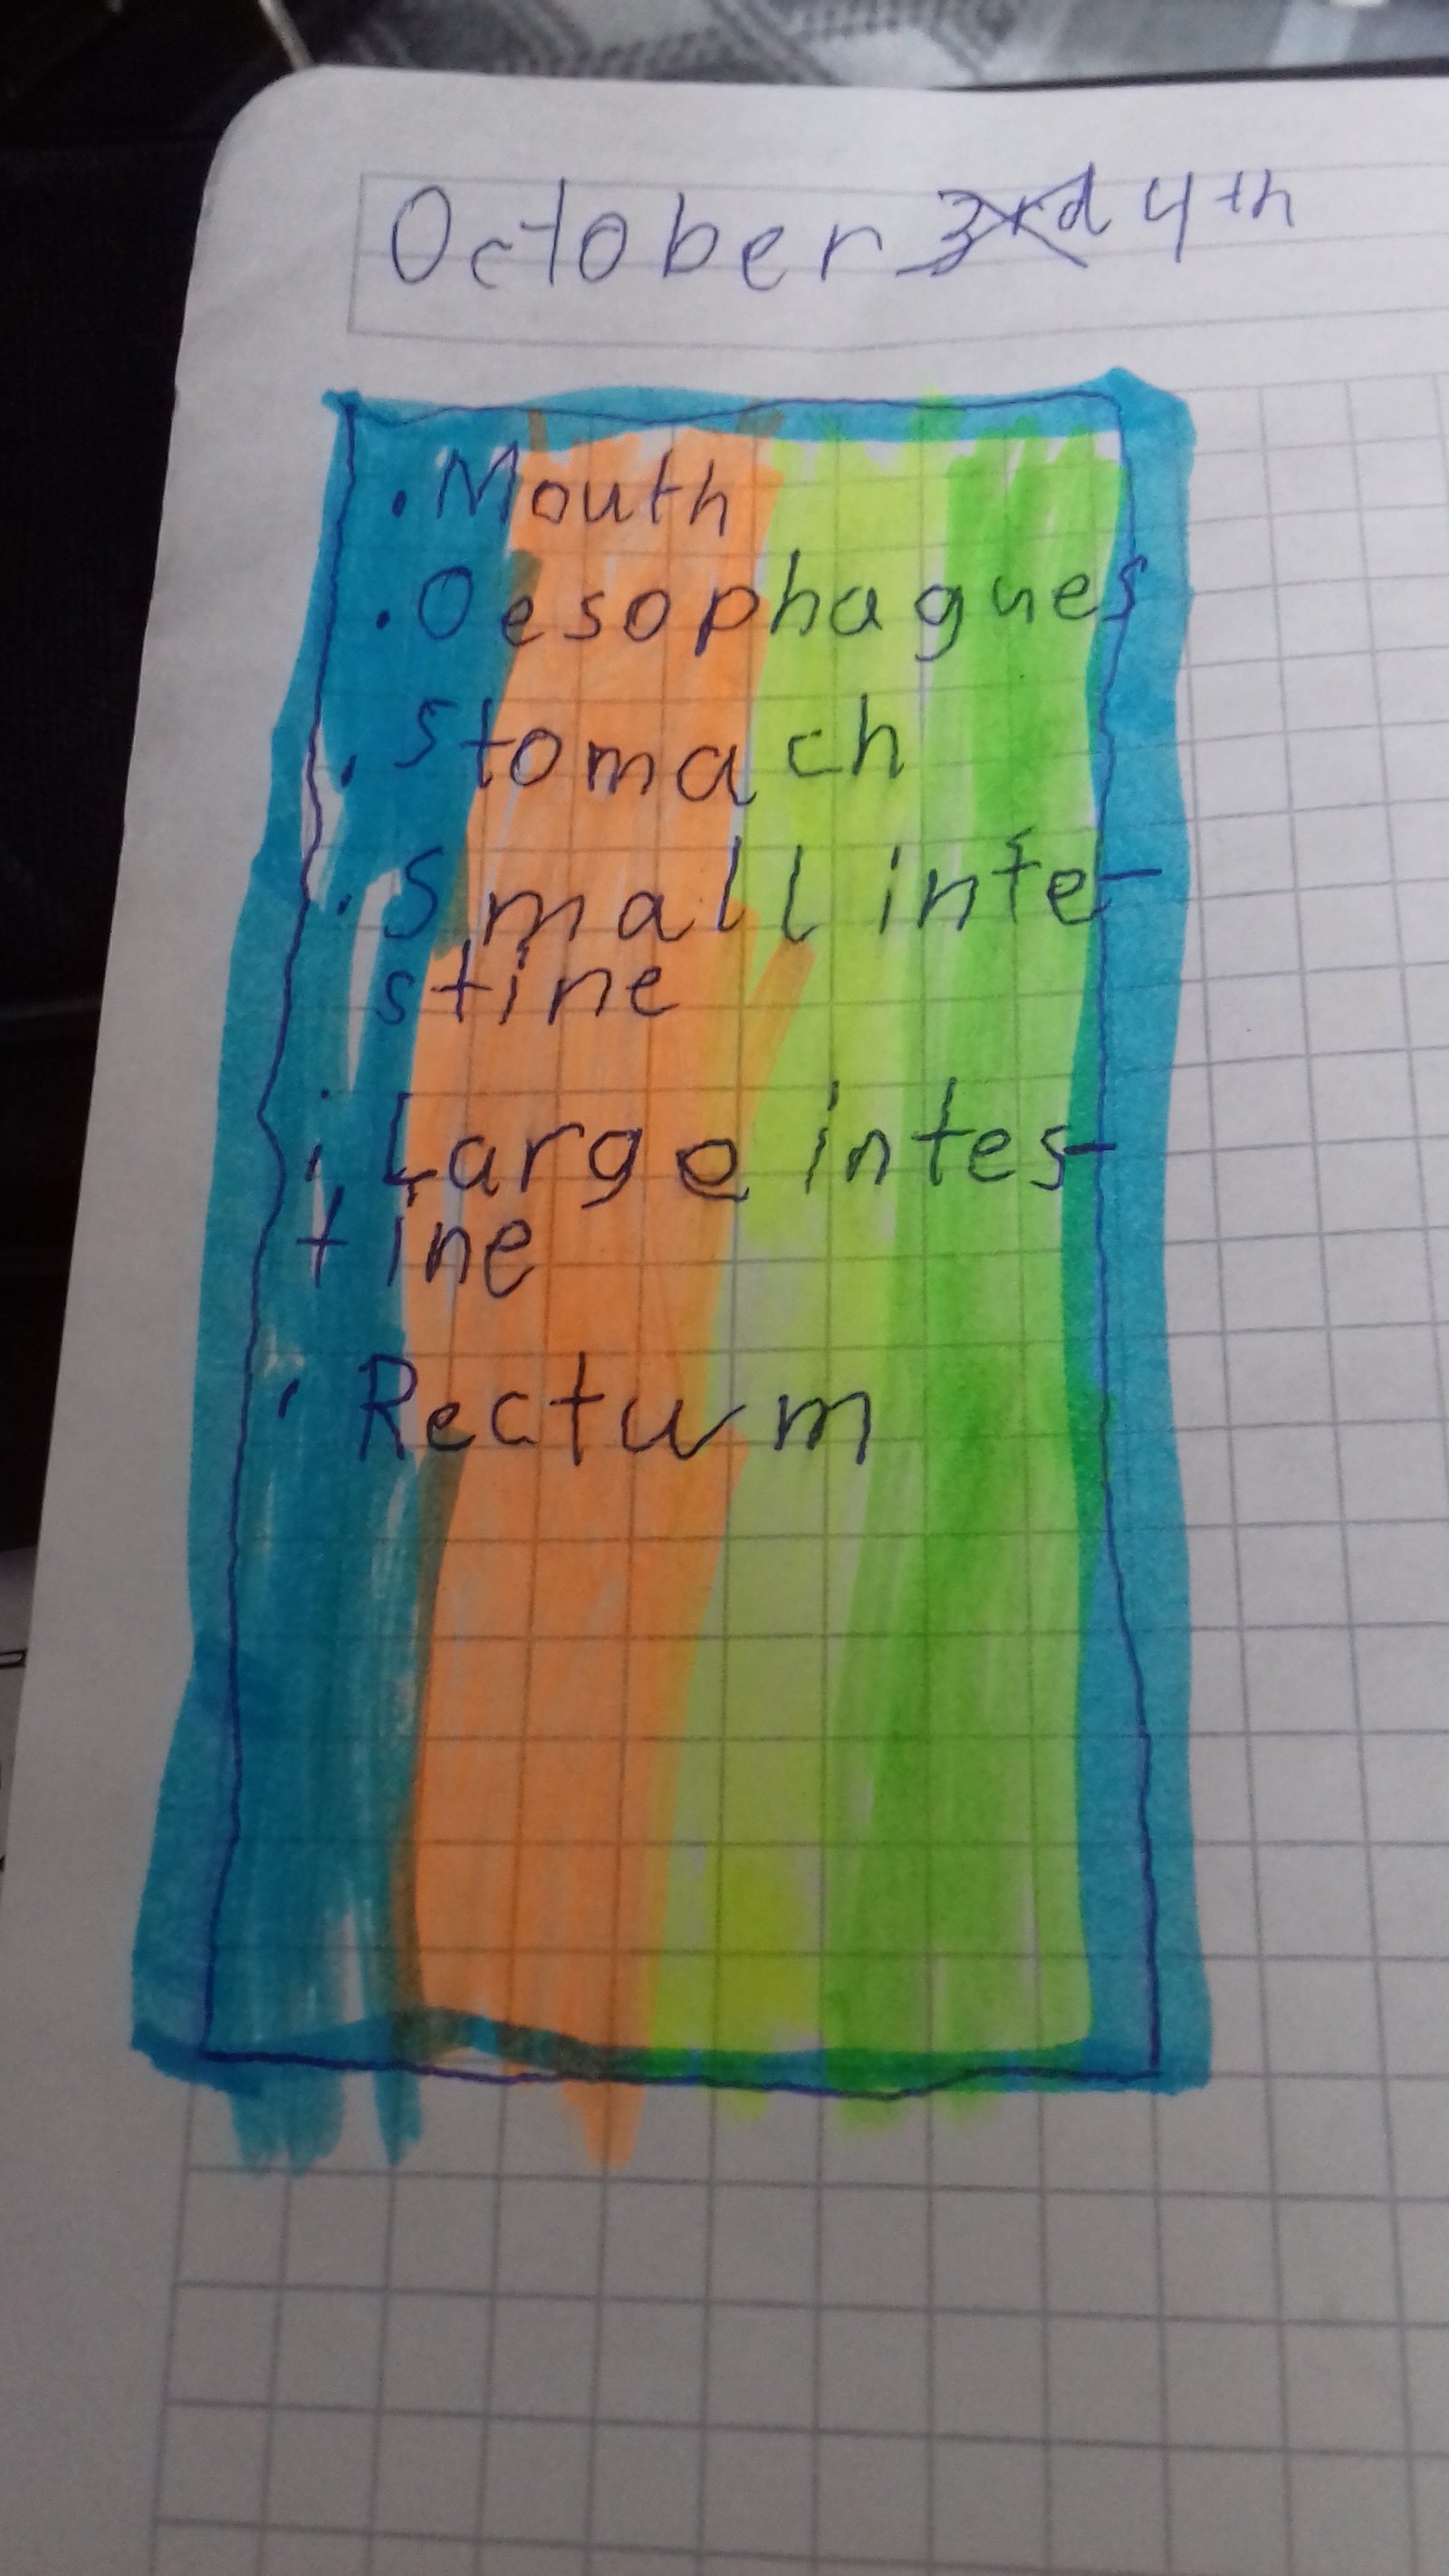 October 3rd 4th
. Mouth
. Oesophagues
. Stomach
. Small inte-
stine
. Large intes-
tine
. Rectum